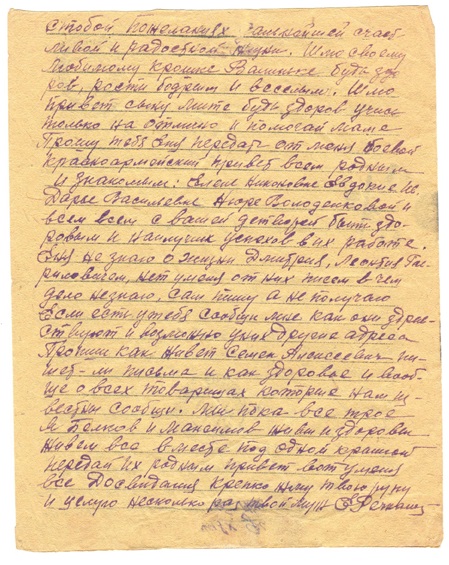 с тобой пожеланиях дальнейшей счаст-
ливой и радостной жизни. Шлю своему
любимому крошке Валиньке будь здо-
ров, расти бодрым и веселым. Шлю
привет сыну Мите будь здоров учись
только на отлично и помогай маме
Прошу тебя Аня передай от меня боевой
красноармейский привет всем родным
и знакомым: Елене Никоновне Евдокие
Дарье Васильевне Нюре Володенковой и
всем всем с вашей детворой быть здо-
ровым и наилучших успехов в их работе.
Аня не знаю о жизни Дмитрия, Леонтия
нет у меня от них писем в чем
дело не знаю, сам пишу а не получаю
Если есть у тебя сообщи мне как они здрав-
ствуют и возможно у них другие адреса
Пропиши как живет Семен Алексеевич пи-
шет-ли письма и как здоровье и вооб-
ще о всех товарищах которые нам из-
вестны сообщи. Мы пока все трое
я и Максимов живы и здоровы
живем все вместе под одной крышей
передай их родным привет вот у меня
все Досвидания крепко жму твою руку
и целую несколько раз твой муж